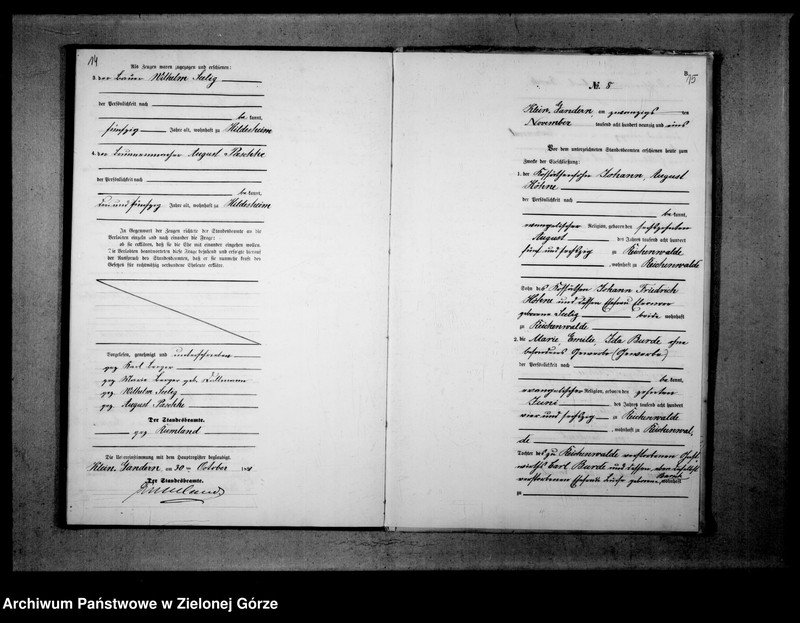 14
Als Zeugen waren zugezogen und erschienen:
3. der Bauer Wilhelm Seelig
der Persönlichkeit nach
be kannt,
fünfzig Jahre alt, wohnhaft zu Hildesheim
4. der Brunnenmacher August Paschke
der Persönlichkeit nach
be kannt,
undfünfzig Jahre alt, wohnhaft zu Hildesheim
In Gegenwart der Zeugen richtete der Standesbeamte an die
Verlobten einzeln und nach einander die Frage:
ob sie erklären, daß sie die Ehe mit einander eingehen wollen.
Die Verlobten beantworteten diese Frage bejahend und erfolgte hierauf
der Ausspruch des Standesbeamten, daß er sie nunmehr kraft des
Gesetzes für rechtmäßig verbundene Eheleute erkläre.
Vorgelesen, genehmigt und unterschrieben
gez Karl Berger
gez Marie Berger geb.
gez Wilhelm Seelig
gez August Paschke
Der Standesbeamte.
gez Rumland
Die Uebereinstimmung mit dem Hauptregister beglaubigt.
Klein Gandern, am 30ten October 18
Der Standesbeamte.
Rumland
B.
15
№ 8
Klein Gandern, am zwanzigsten
November tausend acht hundert neunzig und eins
Vor dem unterzeichneten Standesbeamten erschienen heute zum
Zwecke der Eheschließung:
1. der Johann August
Höhne
der Persönlichkeit nach
be kannt,
evangelischer Religion, geboren den sechszehnten
August des Jahres tausend acht hundert
fünf und sechszig zu Reichenwalde
, wohnhaft zu Reichenwalde
Sohn des Kossäthen Johann Friedrich
Höhne und dessen Ehefrau Eleonore
geborene Seelig beide wohnhaft
zu Reichenwalde
2. die Marie Emilie Ida Burde ohne
besonderes Gewerbe (Gewerbe)
der Persönlichkeit nach
be kannt,
evangelischer Religion, geboren den zehnten
Juni des Jahres tausend acht hundert
vier und sechszig zu Reichenwalde
, wohnhaft zu Reichenwal,
de
Tochter des zu Reichenwalde verstorbenen Gast,
wirths Carl Burde und dessen, eben daselbst
verstorbenen Ehefrau Luise geborene wohnhaft
zu
Archiwum Państwowe w Zielonej Górze